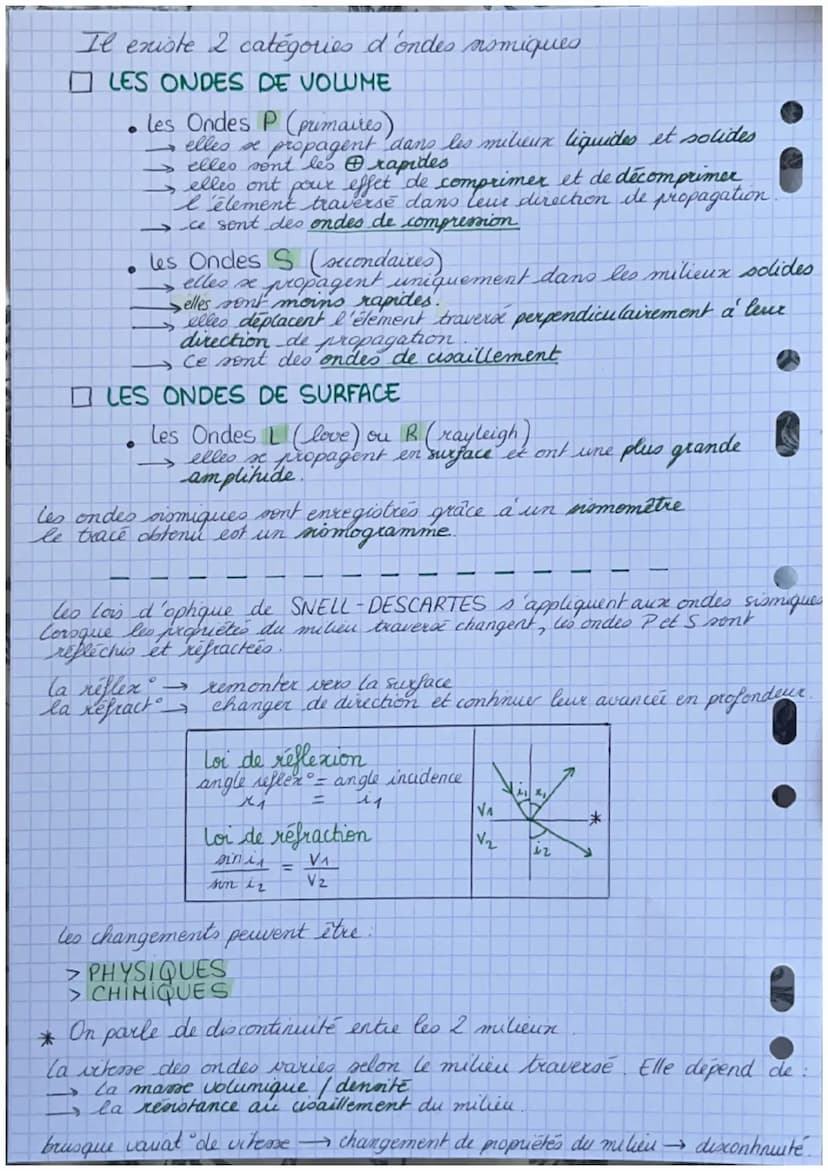 Il existe 2 catégories d'ondes sismiques
□ LES ONDES DE VOLUME
• Les Ondes P (primaires)
→ elles se propagent dans les milieux liquides et solides
→ elles sont les ⊕ rapides
→ elles ont pour effet de comprimer et de décomprimer
l'élement traversé dans leur direction de propagation.
→ ce sont des ondes de compression
• Les Ondes S (secondaires)
→ elles se propagent uniquement dans les milieux solides
→ elles sont moins rapides.
→ elles déplacent l'élement traversé perpendiculairement à leur
direction de propagation.
→ Ce sont des ondes de cisaillement
□ LES ONDES DE SURFACE
• Les Ondes L (love) ou R (rayleigh)
→ elles se propagent en surface et ont une plus grande
amplitude.
Les ondes sismiques sont enregistrés grâce à un sismomètre
le tracé obtenu est un sismogramme.
Les lois d'optique de SNELL-DESCARTES s'appliquent aux ondes sismiques
Lorsque les propriétés du milieu traversé changent, les ondes P et S sont
réfléchis et réfractées.
la réflex° → remonter vers la surface
la réfract° → changer de direction et continuer leur avancée en profondeur.
Loi de réflexion
angle reflex° = angle incidence
r1 = i1
Loi de réfraction
sin i1 / sin i2 = V1 / V2
i1 r1
V1
*
V2
i2
Les changements peuvent être :
> PHYSIQUES
> CHIMIQUES
* On parle de discontinuité entre les 2 milieux.
La vitesse des ondes varies selon le milieu traversé. Elle dépend de :
→ la masse volumique / densité
→ la résistance au cisaillement du milieu.
brusque variat° de vitesse → changement de propriétés du milieu → discontinuité.